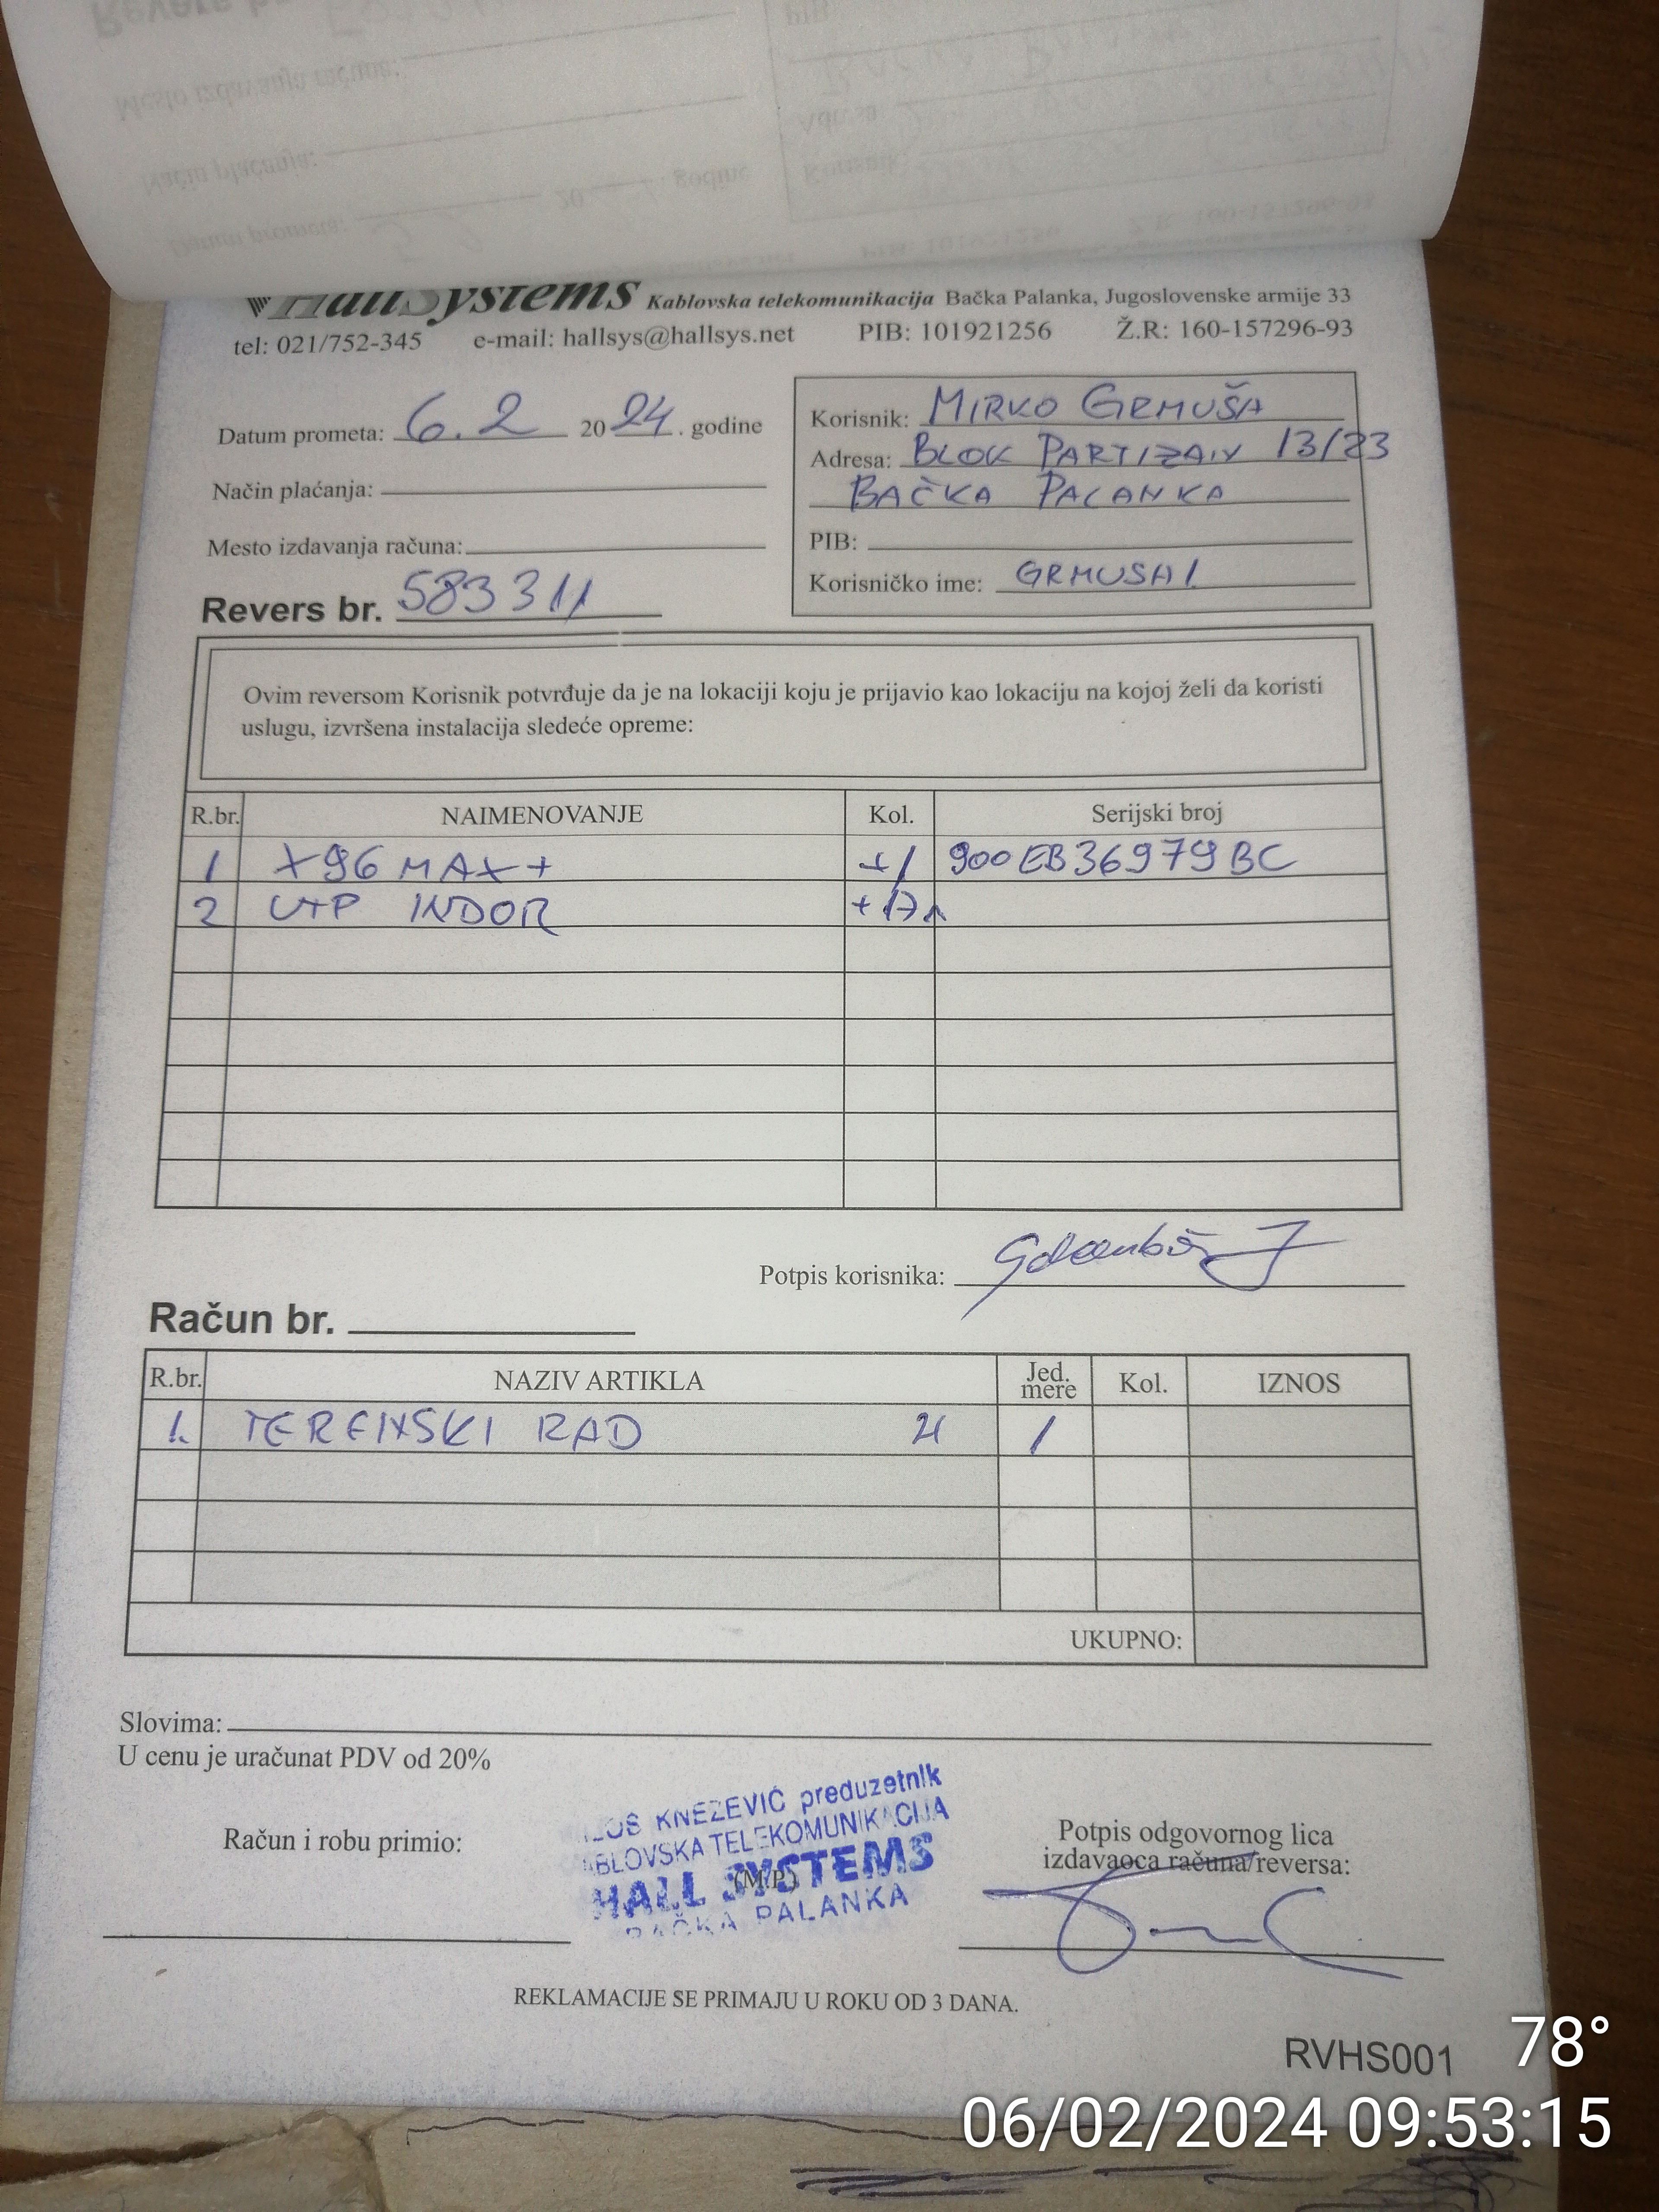 HallSystems Kablovska telekomunikacija Bačka Palanka, Jugoslovenske armije 33
tel: 021/752-345 e-mail: hallsys@hallsys.net PIB: 101921256 Ž.R: 160-157296-93
Datum prometa: 6.2 2024. godine
Način plaćanja:
Mesto izdavanja računa:
Revers br. 583311
Korisnik: MIRKO GRMUŠA
Adresa: BLOK PARTIZAN 13/23
BAČKA PALANKA
PIB:
Korisničko ime: GRMUSA1
Ovim reversom Korisnik potvrđuje da je na lokaciji koju je prijavio kao lokaciju na kojoj želi da koristi
uslugu, izvršena instalacija sledeće opreme:
R.br. NAIMENOVANJE Kol. Serijski broj
1 X96 MAX+ +1 900EB36979BC
2 UTP INDOR
Potpis korisnika:
Račun br.
R.br. NAZIV ARTIKLA Jed. mere Kol. IZNOS
1. TERENSKI RAD 1
UKUPNO:
Slovima:
U cenu je uračunat PDV od 20%
Račun i robu primio:
KNEZEVIĆ preduzetnik
TELEKOMUNIKACIJA
HALL SYSTEMS
(M.P.)
BAČKA PALANKA
Potpis odgovornog lica
izdavaoca računa/reversa:
REKLAMACIJE SE PRIMAJU U ROKU OD 3 DANA.
RVHS001
78°
06/02/2024 09:53:15